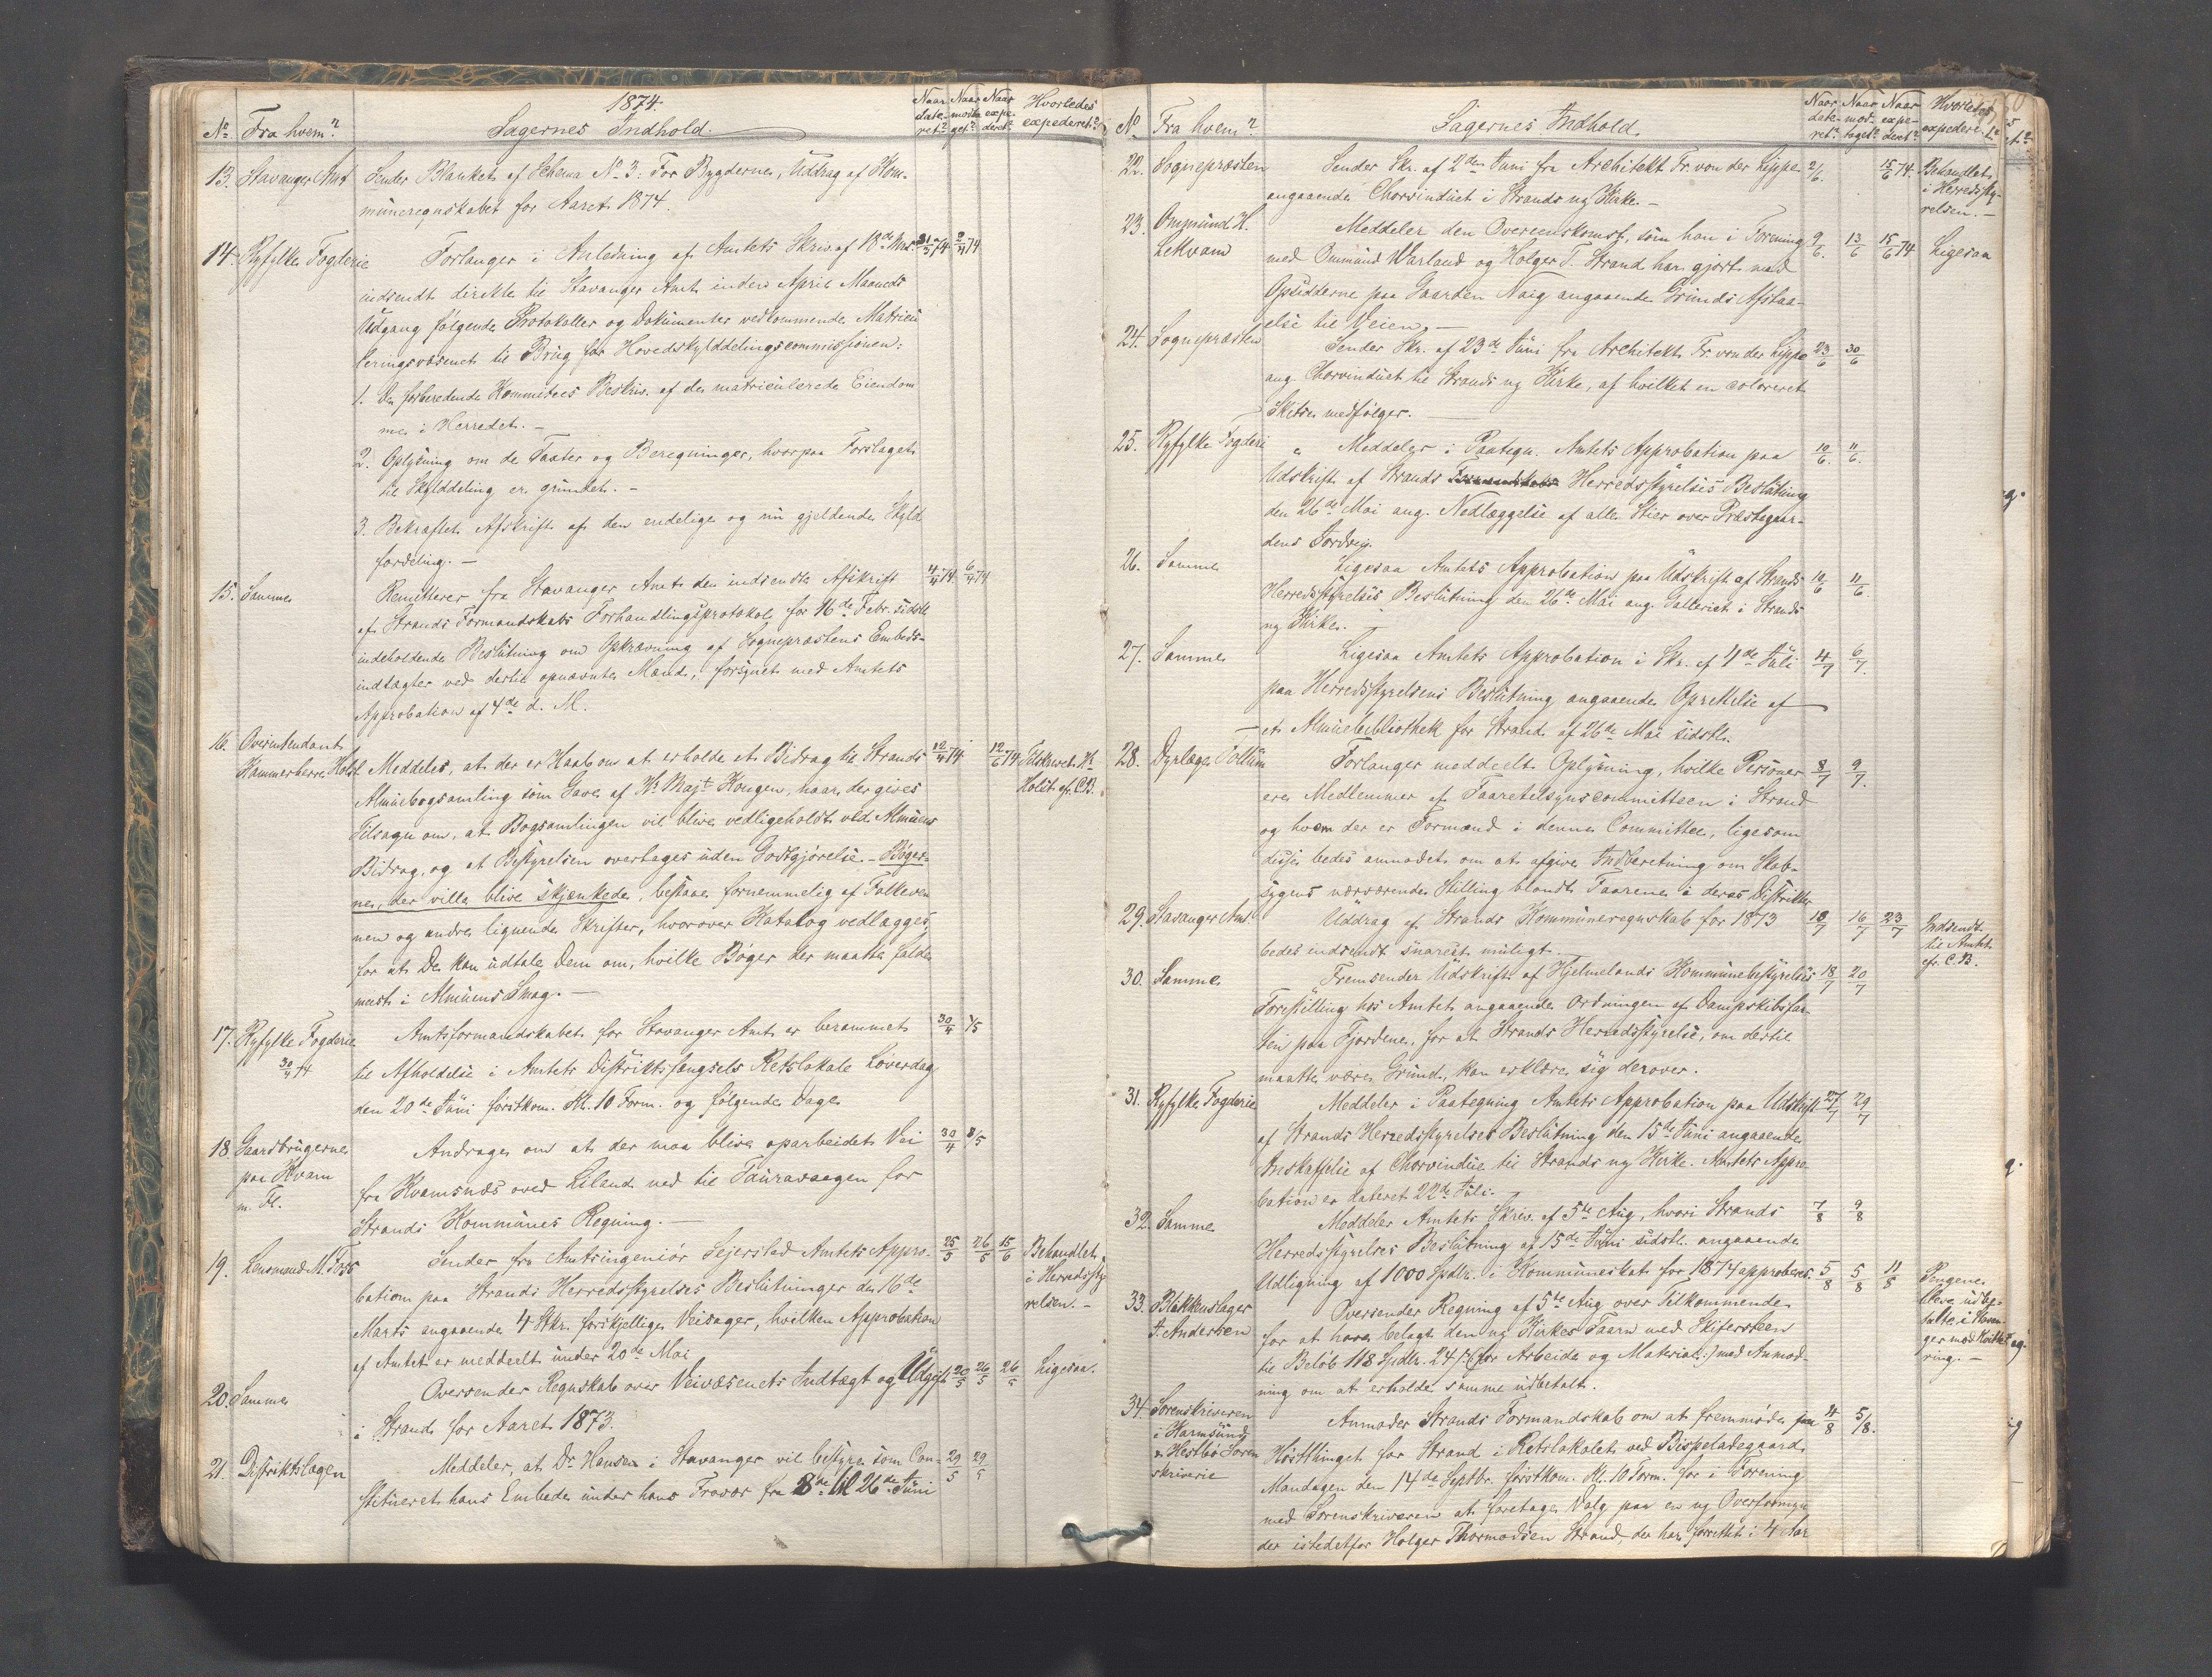 1874.
No. Fra hvem? Sagernes Indhold. Naar dateret? Naar modtaget? Naar expederet? Hvorledes expederet?
13. Stavanger Amt Sender Blanket af Schema No 3: For Bygderne, Uddrag af Kom-
muneregnskabet for Aaret 1874.
14. Ryfylke Fogderie Forlanger i Anledning af Amtets Skriv. af 18de Mrs. 31/3 74 2/4 74
indsendt direkte til Stavanger Amt inden April Maaneds
Udgang følgende Protokoller og Dokumenter vedkommende Matricu
leringsvæsenet til Brug for Hovedskylddelingscommissionen:
1. Den forberedende Kommitees Beskriv. af de matriculerede Eiendom
me i Herredet. –
2. Oplysning om de Taxter og Beregninger, hvorpaa Forslaget
til Skylddeling er grundet. –
3. Bekræftet Afskrift af den endelige og nu gjeldende Skyld
fordeling. –
15. Samme Remitterer fra Stavanger Amt den indsendte Afskrift 4/4 74. 6/4 74
af Strands Formandskabs Forhandlingsprotokol for 16de Febr. sidstl.
indeholdende Beslutning om Opkrævning af Sognepræstens Embeds-
indtægter ved dertil opnævnte Mænd, forsynet med Amtets
Approbation af 4de d. M.
16. Overintendant
Kammerherre Holst Meddeler, at der er Haab om at erholde et Bidrag til Strands 12/4 74 12/6 74 Tilskrevet Hr.
Almuebogsamling som Gave af Hs Majt Kongen, naar der gives Holst cfr. C.B.
Tilsagn om, at Bogsamlingen vil blive vedligeholdt ved Almuens
Bidrag, og at Bestyrelsen overtages uden Godtgjørelse. – Bøger-
ne, der ville blive skjenkede, bestaae fornemmelig af Folkeven
nen og andre lignende Skrifter, hvorover Katalog vedlægges,
for at De kan udtale Dem om, hvilke Bøger der maatte falde
mest i Almuens Smag. –
17. Ryfylke Fogderie Amtsformandskabet for Stavanger Amt er berammet 30/4 1/5
30/4 74 til Afholdelse i Amtets Distriktsfængsels Retslokale Løverdag
den 20de Juni førstkom. Kl. 10 Form. og følgende Dage
18. Gaardbrugerne Andrage om at der maa blive oparbeidet Vei 30/4 8/5
paa Kvam fra Kvamsnæs over Liland ned til Tauravaagen for
m. Fl. Strands Kommunes Regning. –
19. Lensmand M. Foss Sender fra Amtsingeniør Sejersted Amtets Appro- 25/5 26/5 15/6 Behandlet
bation paa Strands Herredsstyrelses Beslutninger den 16de i Herredssty
Marts angaaende 4 Stkr. forskjellige Veisager, hvilken Approbation relsen. –
af Amtet er meddeelt under 20de Mai
20. Samme Oversender Regnskab over Veivæsenets Indtægt og Udgift 20/5 26/5 26/5 Ligesaa.
i Strand for Aaret 1873.
21. Distriktslægen Meddeler, at Dr Hansen i Stavanger vil bestyre som Con- 29/5 29/5
stitueret hans Embede under hans Fravær fra 8de til 26de Juni
No Fra hvem? Sagernes Indhold. Naar dateret? Naar modtaget? Naar expederet? Hvorledes expederet
22. Sognepræsten Sender Skr. af 2den Juni fra Architekt Fr. von der Lippe 2/6. 15/6 74. Behandlet
angaaende Chorvinduet i Strands ny Kirke. – i Herredssty-
relsen. –
23. Ommund H. Meddeler den Overeenskomst, som han i Forening 9/6. 13/6 15/6 74 Ligesaa
Lekvam med Ommund Warland og Holger T. Strand har gjort med
Opsidderne paa Gaarden Naig angaaende Grunds Afstaa-
else til Veien. –
24. Sognepræsten Sender Skr. af 23de Juni fra Architekt Fr. von der Lippe 23/6 30/6
ang. Chorvinduet til Strands ny Kirke, af hvilket en coloreret
Skitse medfølger. –
25. Ryfylke Fogderi Meddeler i Paategn. Amtets Approbation paa 10/6. 11/6.
Udskrift af Strands Herredsstyrelses Beslutning
den 26de Mai ang. Nedlæggelse af alle Stier over Præstegaar-
dens Jordvei.
26. Samme Ligesaa Amtets Approbation paa Udskrift af Strands 10/6 11/6.
Herredsstyrelses Beslutning den 26de Mai ang. Galleriet i Strands
ny Kirke. –
27. Samme Ligesaa Amtets Approbation i Skr. af 4de Juli 4/7 6/7.
paa Herredsstyrelsens Beslutning angaaende Oprettelse af
et Almuebibliothek for Strand af 26de Mai sidstl.
28. Dyrlæge Tollum Forlanger meddeelt Oplysning, hvilke Personer 8/7 9/7.
ere Medlemmer af Faaretilsynscommitteen i Strand
og hvem der er Formand i denne Committee, ligesom
disse bedes anmodet om at afgive Indberetning om Skab-
sygens nærværende Stilling blandt Faarene i deres Distrikter
29. Stavanger Amt. Uddrag af Strands Kommuneregnskab for 1873 10/7 16/7 23/7 Indsendt
bedes indsendt snarest muligt. til Amtet
cfr. C.B.
30. Samme Fremsender Udskrift af Hjelmelands Kommunebestyrelses 18/7 20/7
Forestilling hos Amtet angaaende Ordningen af Dampskibsfar-
ten paa Fjordene, for at Strands Herredsstyrelse, om dertil
maatte være Grund, kan erklære sig derover.
31. Ryfylke Fogderie Meddeler i Paategning Amtets Approbation paa Udskrift 27/7 29/7
af Strands Herredsstyrelses Beslutning den 15de Juni angaaende
Anskaffelse af Chorvindue til Strands ny Kirke. Amtets Appro
bation er dateret 22de Juli.
32. Samme Meddeler Amtets Skriv. af 5te Aug, hvori Strands 7/8 9/8
Herredsstyrelses Beslutning af 15de Juni sidstl. angaaende
Udligning af 1000 Spdlr. i Kommuneskat for 1874 approberes.
33. Blikkenslager Oversender Regning af 5te Aug over Tilkommende 5/8 5/8 11/8 Pengene
T. Andersen for at have belagt den ny Kirkes Taarn med Skifersteen bleve udbe-
til Beløb 118 Spdlr. 24 ß (for Arbeide og Material:) med Anmod- talte i Stavan
ning om at erholde samme udbetalt. ger mod Kvitte
ring. –
34. Sorenskriveren Anmoder Strands Formandskab om at fremmøde paa 4/8 5/8.
i Karmsund Høstthinget for Strand i Retslokalet ved Bispeladegaard
& Hesbø Soren Mandagen den 14de Septbr. førstkom. Kl. 10 Form. for i Forening
skriverie med Sorenskriveren at foretage Valg paa en ny Overformyn
der istedetfor Holger Thormodsen Strand, der har forrettet i 4 Aar